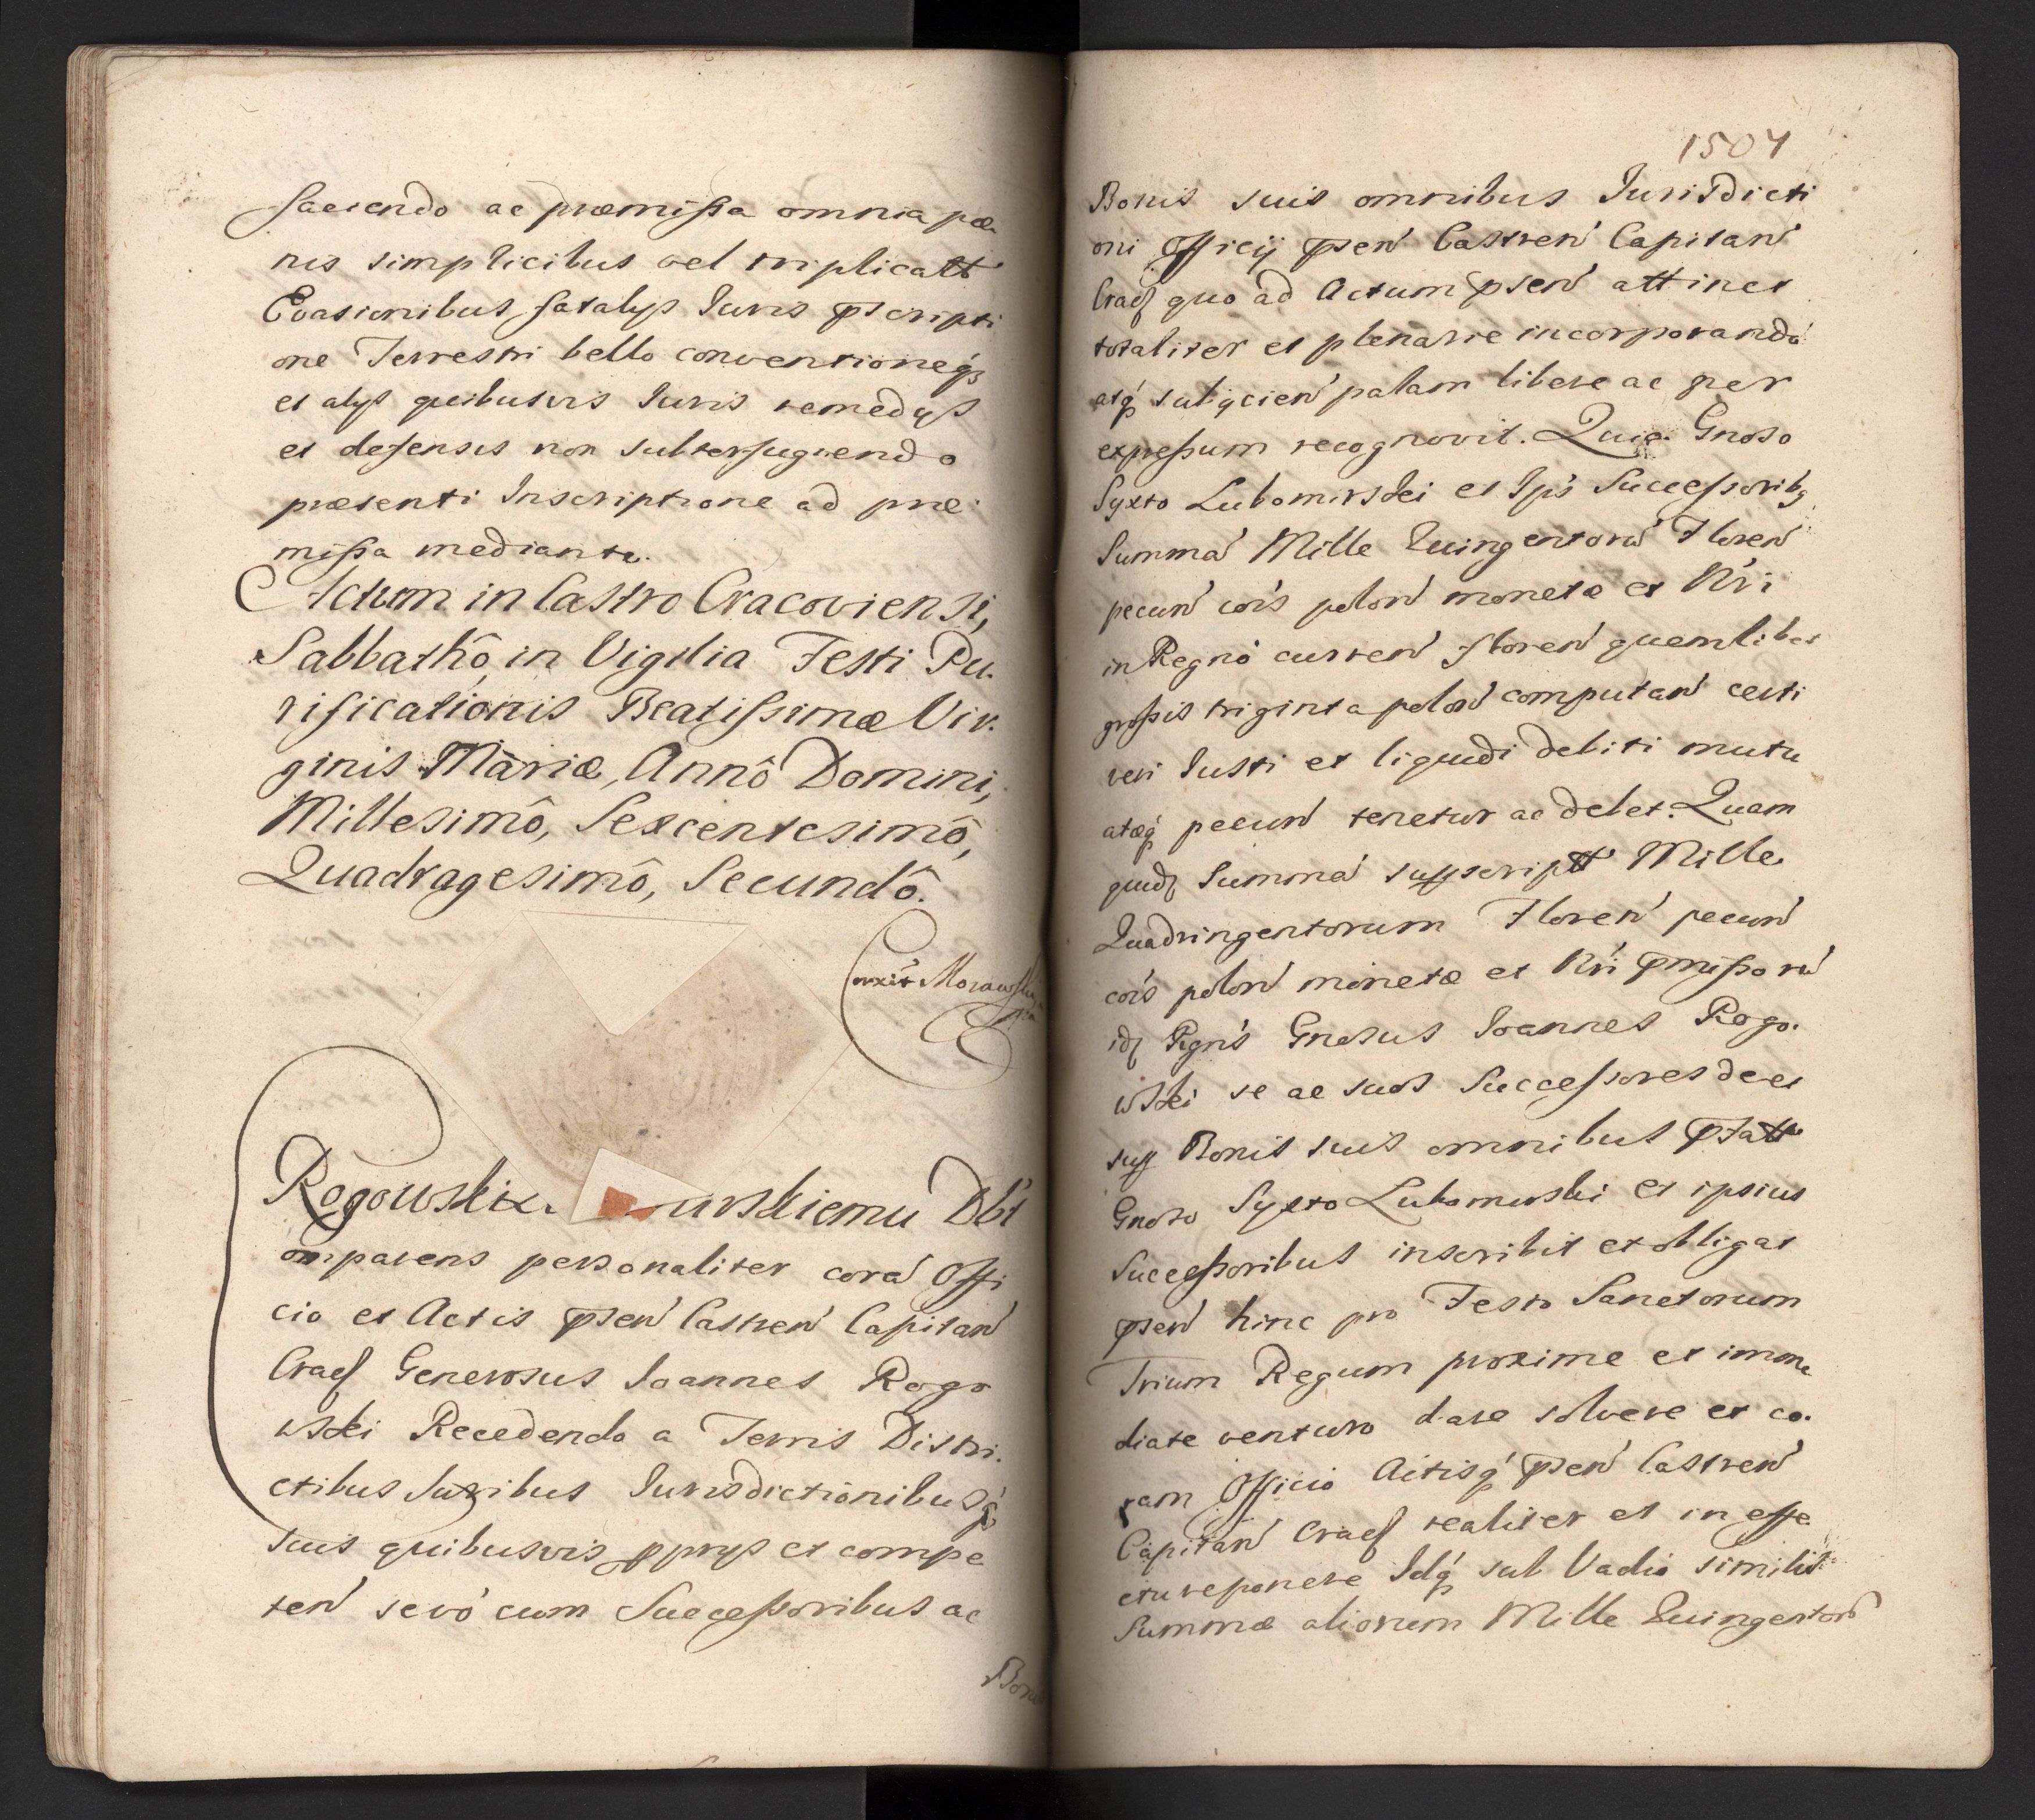 faciendo ac præmissa omnia pæ
nis simplicibus vel triplicatt
Evasionibus fatalijs Iuris pscripti
one Terrestri bello conventioneq́
et alijs quibusvis Iuris remedijs
et defensis non subterfugiendo
præsenti Inscriptione ad præ
missa mediante.
Actum in Castro Cracoviensi,
Sabbathô, in Vigilia Festi Pu.
rificationis Beatissimæ Vir.
ginis Mariæ, Annô Domini,
Millesimô, Sexcentesimô,
Quadragesimô, Secundô.
Rogowski urskiemu Dbt
omparens personaliter corá Offi
cio et Actis psen̄ Castren̄ Capitan̄
Crac Generosus Ioannes Rogo
wski Recedendo a Terris Distri.
ctibus Iuribus Iurisdictionibusq́
suis quibusvis pprijs et compe
ten̄ sevó cum Successoribus ac
Bon
1504
Bonis suis omnibus Iurisdicti
oni Officij psen̄ Castren̄ Capitan̄
Crac quo ad Actum psen̄ attinet
totaliter et plenarie incorporando
atq́ subijcien̄ palam libere ac per
expressum recognovit. Quia Gnoso
Syxto Lubomirski et Ip̄s Successoribq
Summá Mille Quingentorú Floren̄
pecun̄ cōis polon̄ monetæ et Nr̄i
in Regnó curren̄ floren̄ quemlibet
grossis triginta polon̄ computan̄ certi
veri Iusti et liquidi debiti mutu
atæq́ pecun̄ tenetur ac debet. Quam
quid Summá suprscriptt Mille
Quadringentorum Floren̄ pecun̄
cōis polon̄ monetæ et Nr̄i pmissorú
id Rgn̄s Gnosus Ioannes Rogo.
wski se ac suos Successores de et
sup Bonis suis omnibus pfatt
Gnoso Syxto Lubomirski et ipsius
Successoribus inscribit et obligat
psen̄ hinc pro Festo Sanctorum
Trium Regum proxime et imme
diate venturo dare solvere et co.
ram Officio Actisq́ psen̄ Castren̄
Capitan̄ Crac realiter et in effe
ctu reponere Idq́ sub Vadio similis
Summæ aliorum Mille Quingentorú